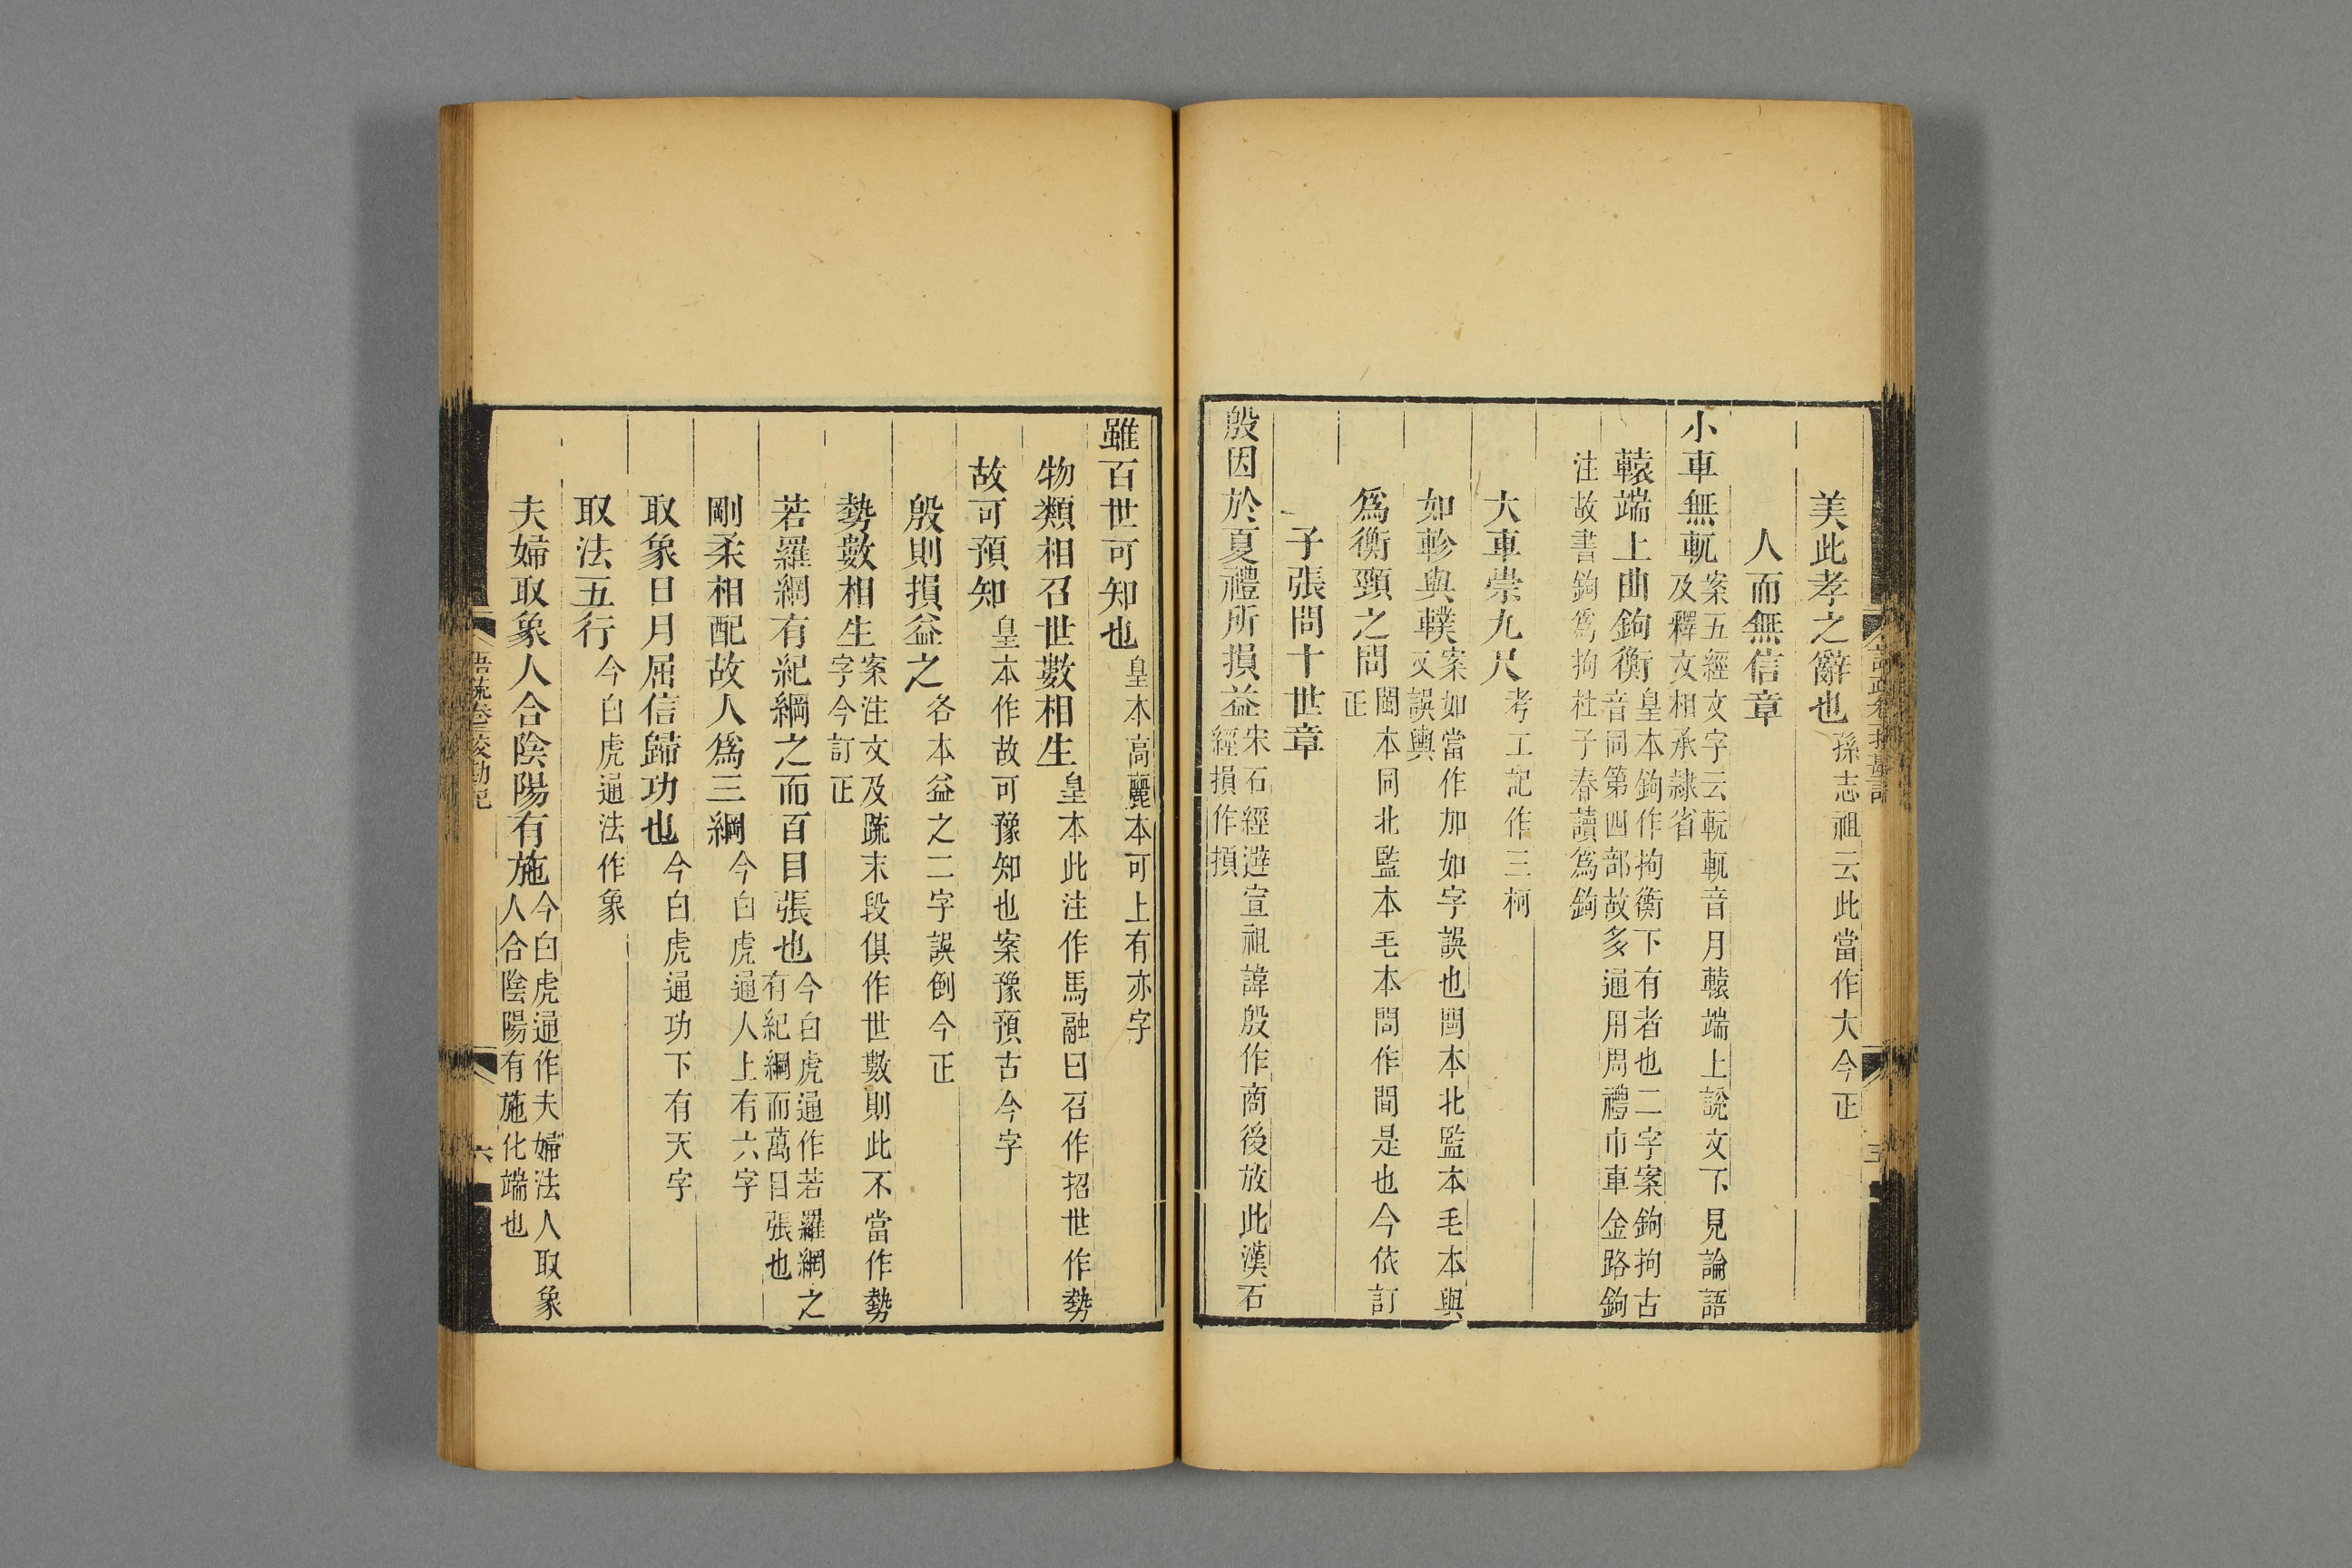 美此孝之辭也孫志祖云此當作大今正
人而無信章
小車無軏案五經文字云軏軏音月轅端上說文下見論語
及釋文相承隷省
轅端上曲鉤衡皇本鉤作拘衡下有者也二字案鉤拘古
音同第四部故多通用周禮巾車金路鉤
注故書鉤爲拘杜子春讀爲鉤
大車崇九尺考工記作三柯
如軫與轐案如當作加如字誤也閩本北監本毛本與
又誤輿
爲衡頸之間閩本同北監本毛本間作閒是也今依訂
正
子張問十世章
殷因於夏禮所損益宋石經避宣祖諱殷作商後放此漢石
經損作損
雖百世可知也皇本高麗本可上有亦字
物類相召世數相生皇本此注作馬融曰召作招世作勢
故可預知皇本作故可豫知也案豫預古今字
殷則損益之各本益之二字誤倒今正
勢數相生案注文及疏末段俱作世數則此不當作勢
字今訂正
若羅綱有紀綱之而百目張也今白虎通作若羅網之
有紀綱而萬目張也
剛柔相配故人爲三綱今白虎通人上有六字
取象日月屈信歸功也今白虎通功下有天字
取法五行今白虎通法作象
夫婦取象人合陰陽有施今白虎通作夫婦法人取象
人合陰陽有施化端也
語疏卷二校勘記
六